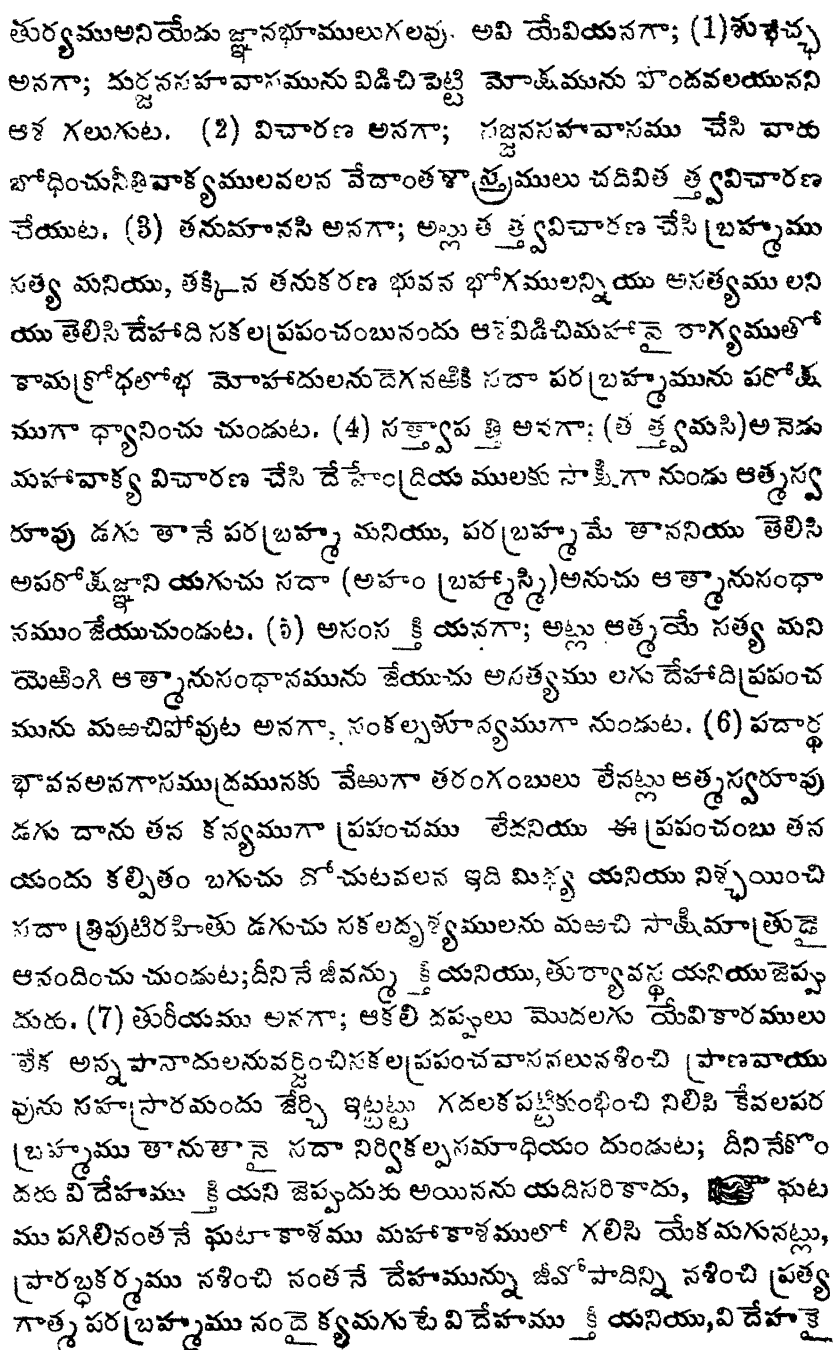 తుర్యముఅనియేడు జ్ఞానభూములుగలవు. అవి యేవియనగా; (1)శుభేచ్ఛ
అనగా; దుర్జనసహవాసమును విడిచిపెట్టి మోక్షమును పొందవలయునని
ఆశ గలుగుట. (2) విచారణ అనగా; సజ్జనసహవాసము చేసి వారు
బోధించునీతివాక్యములవలన వేదాంతశాస్త్రములు చదివిత త్త్వవిచారణ
చేయుట. (3) తనుమానసి అనగా; అట్లు త త్త్వవిచారణ చేసి బ్రహ్మము
సత్య మనియు, తక్కిన తనుకరణ భువన భోగములన్నియు అసత్యము లని
యు తెలిసి దేహాది సకలప్రపంచంబునందు ఆశవిడిచిమహావై రాగ్యముతో
కామక్రోధలోభ మోహాదులనుదెగనఱికి సదా పరబ్రహ్మమును పరోక్ష
ముగా ధ్యానించు చుండుట. (4) సత్త్వాప త్తి అనగా; (త త్త్వమసి)అనెడు
మహావాక్య విచారణ చేసి దేహేంద్రియ ములకు సాక్షిగా నుండు ఆత్మస్వ
రూపు డగు తానే పరబ్రహ్మ మనియు, పరబ్రహ్మమే తాననియు తెలిసి
అపరోక్షజ్ఞాని యగుచు సదా (అహం బ్రహ్మాస్మి)అనుచు ఆత్మానుసంధా
నముం జేయుచుండుట. (5) అసంస క్తి యనగా; అట్లు ఆత్మయే సత్య మని
యెఱింగి ఆత్మానుసంధానమును జేయుచు అసత్యము లగు దేహాదిప్రపంచ
మును మఱచిపోవుట అనగా, సంకల్పశూన్యముగా నుండుట. (6) పదార్థ
భావనఅనగాసముద్రమునకు వేఱుగా తరంగంబులు లేనట్లు ఆత్మస్వరూపు
డగు దాను తన కన్యముగా ప్రపంచము లేదనియు ఈ ప్రపంచంబు తన
యందు కల్పితం బగుచు దోచుటవలన ఇది మిథ్య యనియు నిశ్చయించి
సదా త్రిపుటిరహితు డగుచు సకలదృశ్యములను మఱచి సాక్షిమాత్రుడై
ఆనందించు చుండుట;దీనినే జీవన్ము క్తి యనియు,తుర్యావస్థ యనియుజెప్పు
దురు. (7) తురీయము అనగా; ఆకలి దప్పులు మొదలగు యేవికారములు
లేక అన్నపానాదులనువర్జించిసకలప్రపంచవాసనలునశించి ప్రాణవాయు
వును సహస్రారమందు జేర్చి ఇట్టట్టు గదలకపట్టికుంభించి నిలిపి కేవలపర
బ్రహ్మము తానుతానై సదా నిర్వికల్పసమాధియం దుండుట; దీనినేకొం
దరు విదేహము క్తి యని జెప్పుదురు అయినను యదిసరికాదు, ఘట
ము పగిలినంతనే ఘటాకాశము మహాకాశములో గలిసి యేకమగునట్లు,
ప్రారబ్ధకర్మము నశించి నంతనే దేహమున్ను జీవోపాదిన్ని నశించి ప్రత్య
గాత్మ పరబ్రహ్మము నందైక్యమగుటే విదేహము క్తి యనియు,విదేహకై